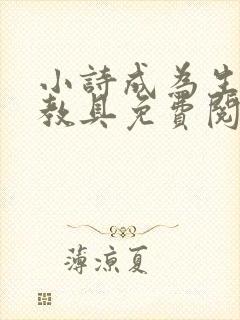 小詩成為生
教具免費閱
薄涼夏